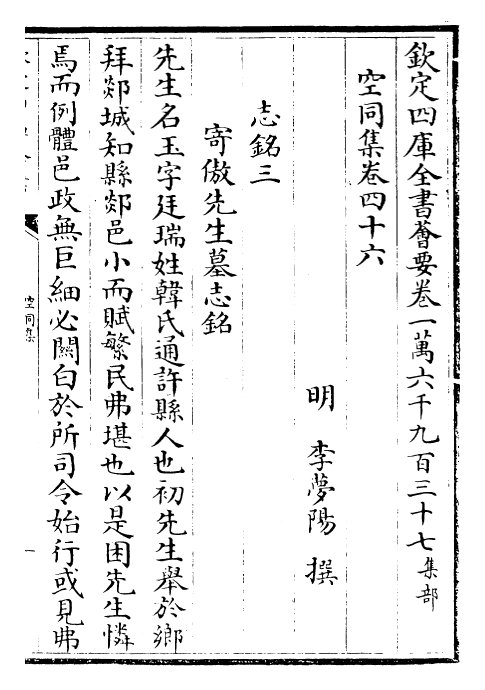 欽定四庫全書薈要卷一萬六千九百三十七集部
空同集卷四十六
明 李夢陽 撰
志銘三
寄傲先生墓志銘
先生名玉字廷瑞姓韓氏通許縣人也初先生舉於鄉
拜郯城知縣郯邑小而賦繁民弗堪也以是困先生憐
焉而例體邑政無巨細必關白於所司令始行或見弗
空同集
一